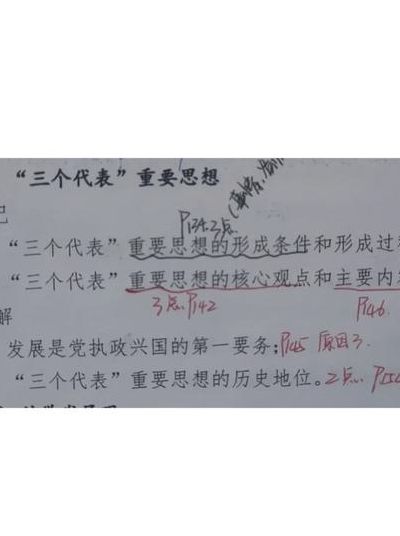 “三个代表”重要思想
P134.3点
“三个代表”重要思想的形成条件和形成过
“三个代表”重要思想的核心观点和主要内
3点.P142 P146.
解
发展是党执政兴国的第一要务;P145 原因3.
“三个代表”重要思想的历史地位。2点.